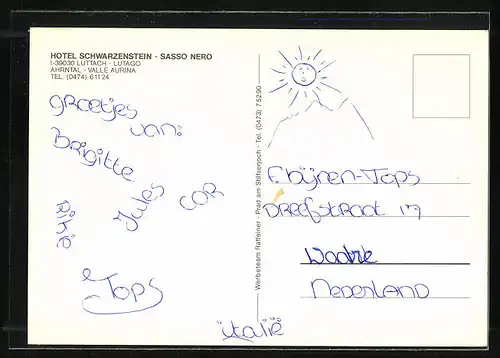 HOTEL SCHWARZENSTEIN - SASSO NERO
I-39030 LUTTACH - LUTAGO
AHRNTAL - VALLE AURINA
TEL. (0474) 61124
Groetjes
van:
Brigitte
Jules
COR
Tops
Italië
Werbeteam Raffeiner - Prad am Stilfserjoch - Tel. (0473) 75290
Dreefstraat 17
Waalre
NEDERLAND